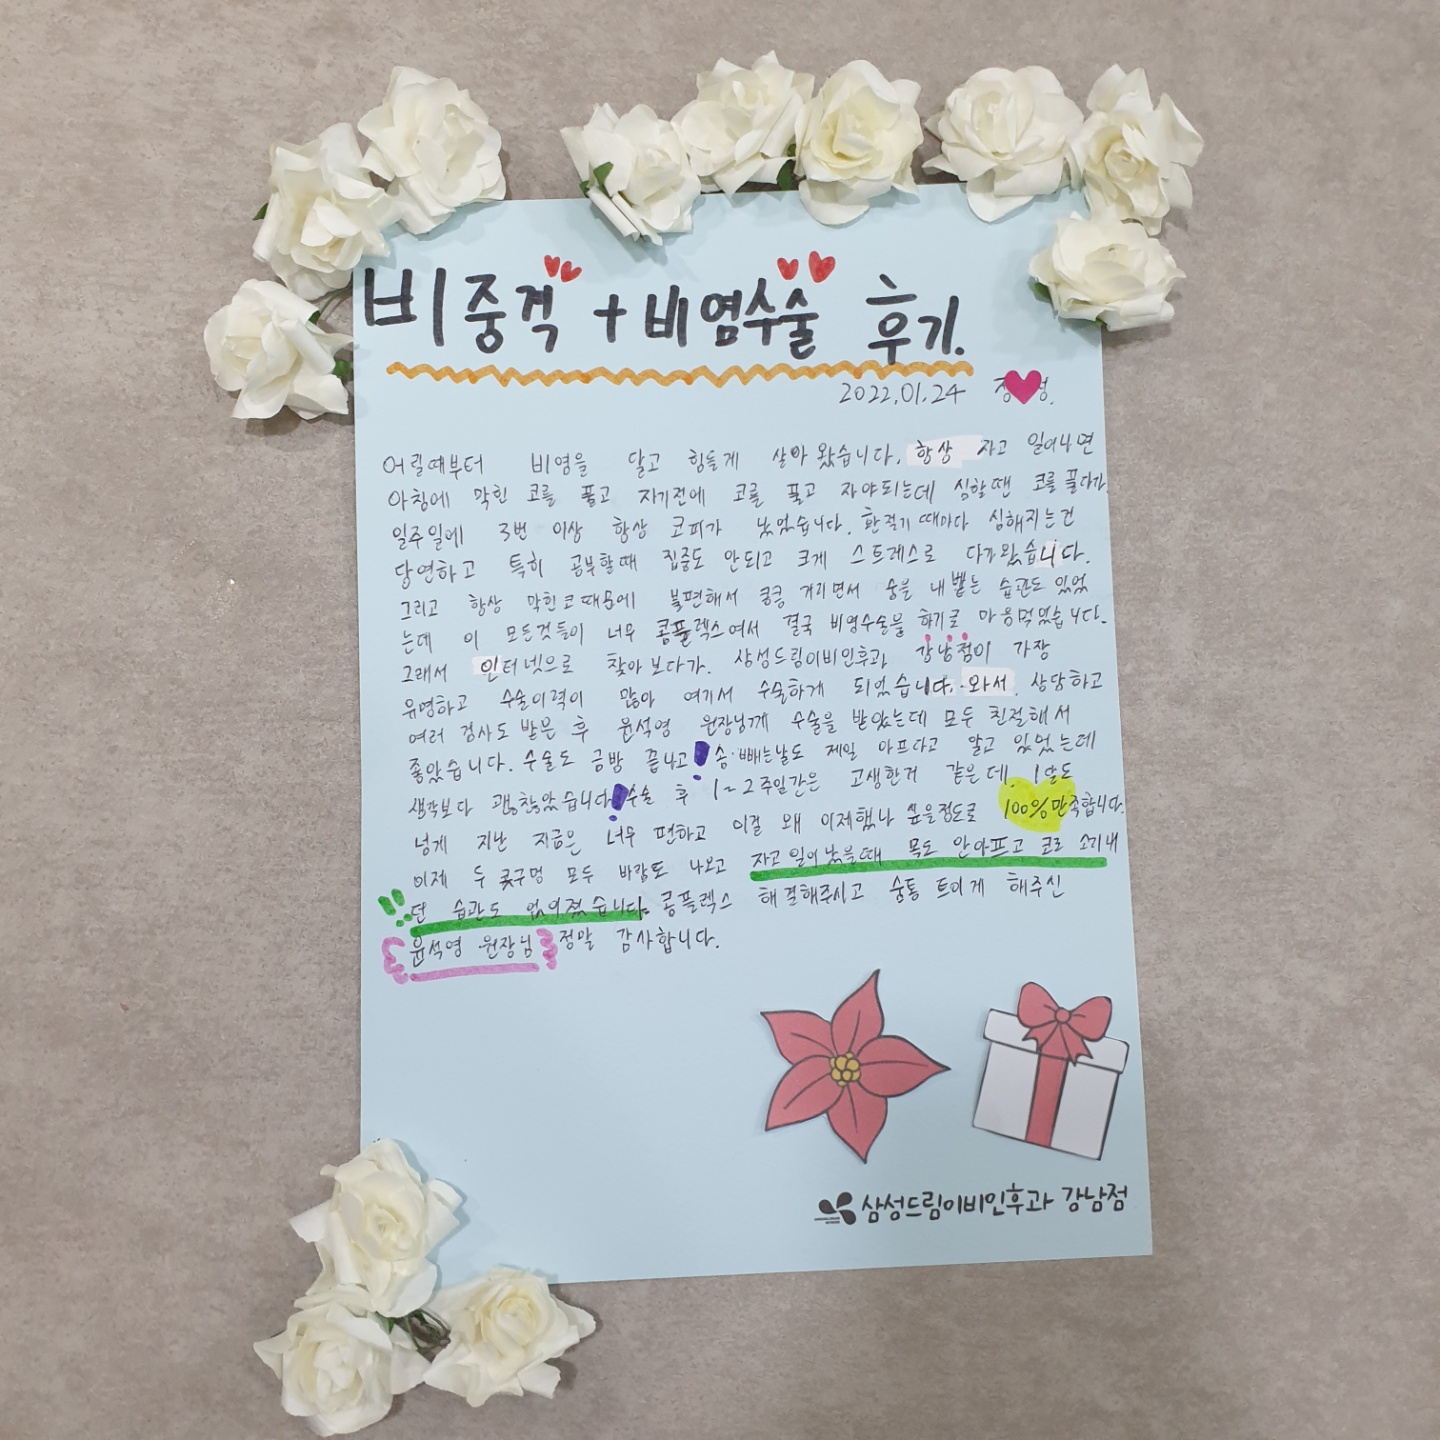 비중격 + 비염수술 후기.
2022.01.24 정 영.
어릴때부터 비염을 달고 힘들게 살아 왔습니다. 항상 자고 일어나면
아침에 막힌 코를 풀고 자기전에 코를 풀고 자야되는데 심할땐 코를 풀다가
일주일에 3번 이상 항상 코피가 났었습니다. 환절기 때마다 심해지는건
당연하고 특히 공부할때 집중도 안되고 크게 스트레스로 다가왔습니다.
그리고 항상 막힌코 때문에 불편해서 킁킁 거리면서 숨을 내뱉는 습관도 있었
는데 이 모든것들이 너무 콤플렉스여서 결국 비염수술을 하기로 마음먹었습니다.
그래서 인터넷으로 찾아보다가. 삼성드림이비인후과 강남점이 가장
유명하고 수술이력이 많아 여기서 수술하게 되었습니다. 와서 상담하고
여러 검사도 받은 후 윤석영 원장님께 수술을 받았는데 모두 친절해서
좋았습니다. 수술도 금방 끝나고! 솜 빼는날도 제일 아프다고 알고 있었는데
생각보다 괜찮았습니다! 수술 후 1~2주일간은 고생한거 같은데, 1달도
넘게 지난 지금은 너무 편하고 이걸 왜 이제했나 싶을정도로 100%만족합니다.
이제 두 콧구멍 모두 바람도 나오고 자고 일어났을때 목도 안아프고 코로 소리내
던 습관도 없어졌습니다. 콤플렉스 해결해주시고 숨통 트이게 해주신
윤석영 원장님 정말 감사합니다.
삼성드림이비인후과 강남점